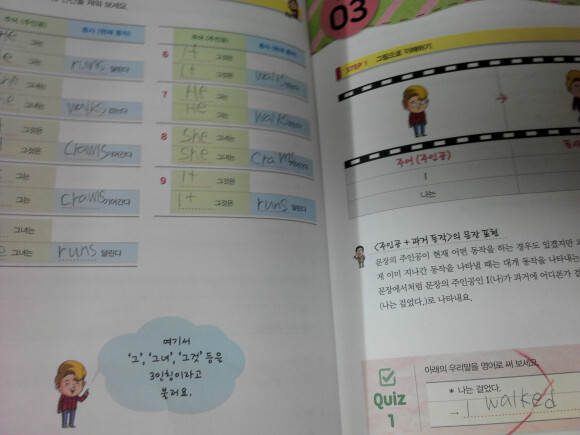 빈칸을 채워 보세요.
주어 (주인공) 동사 (현재 동작)
He
그는 runs 달린다
She
그녀는 walks 걷는다
그것은 Crawls 기어간다
그는 Crawls 기어간다
그녀는 runs 달린다
주어 (주인공) 동사 (현재 동작)
6 It 그것은
It 그것은 walks 걷는다
7 He 그는
He 그는 walks 걷는다
8 She 그녀는
She 그녀는 Crawls 기어간다
9 It
It 그것은 runs 달린다
여기서
'그', '그녀', '그것' 등은
3인칭이라고
불러요.
03
STEP 1 그림으로 이해하기
주어 (주인공)
I
나는
<주인공 + 과거 동작>의 문장 표현
문장의 주인공이 현재 어떤 동작을 하는 경우도 있겠지만
게 이미 지나간 동작을 나타낼 때는 대개 동작을 나타내는
문장에서처럼 문장의 주인공인 I(나)가 과거에 어디론가
(나는 걸었다.)로 나타내요.
아래의 우리말을 영어로 써 보세요.
Quiz
1
* 나는 걸었다.
→ I walked